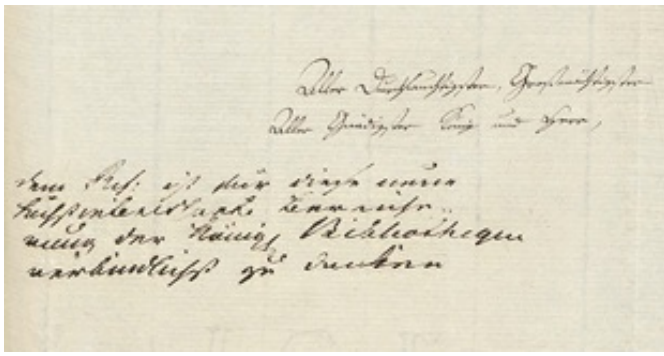 Aller Durchlauchtigster, Großmächtigster
Aller Gnädigster König und Herr,
dem Ref: ist für diese neue
Bereiche-
rung der Königl Bibliothequen
verbindlichst zu danken